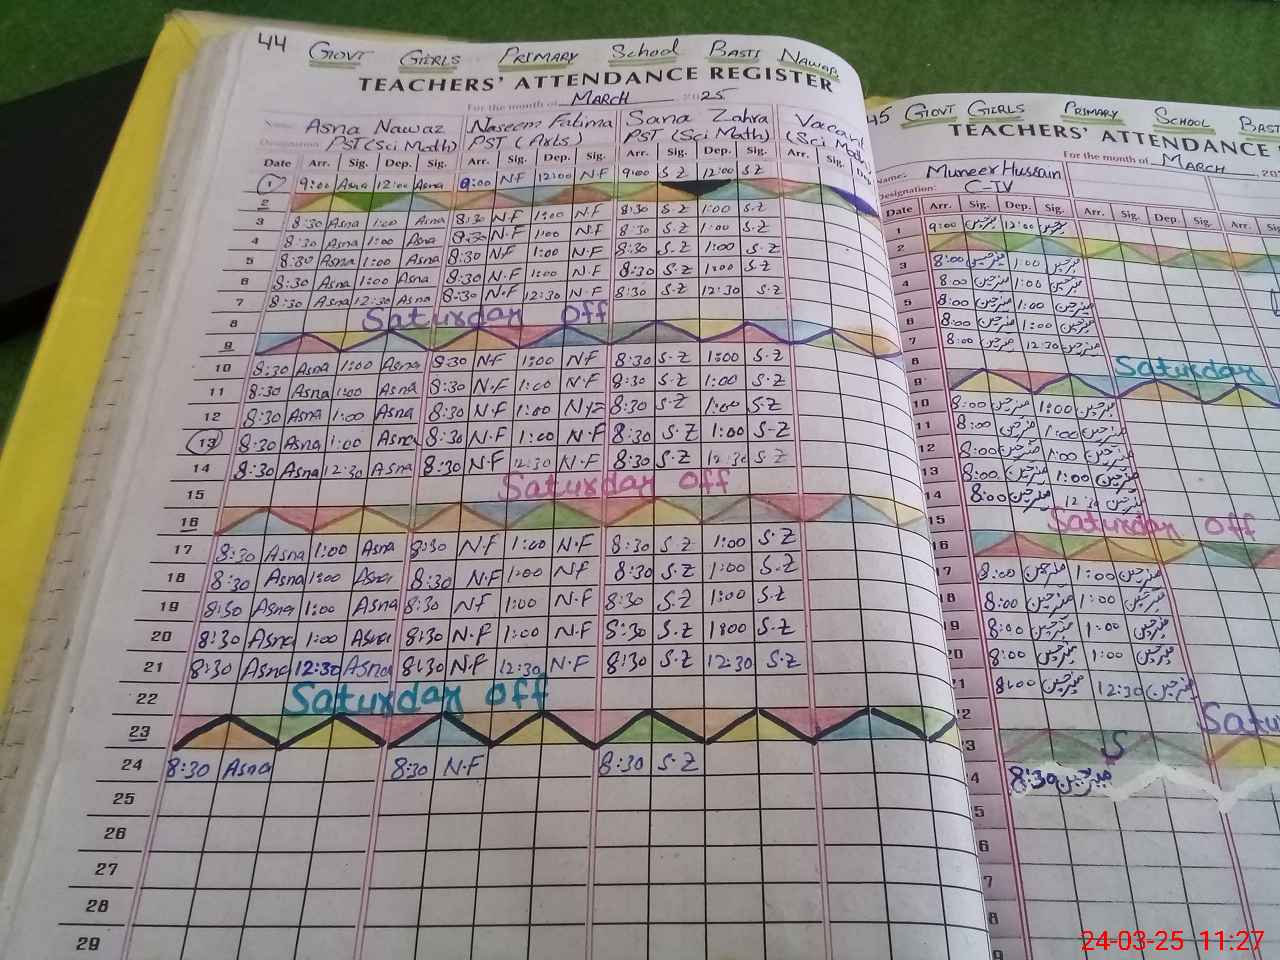 44 GOVT GIRLS PRIMARY School BASTI NAWAB
TEACHERS' ATTENDANCE REGISTER
For the month of MARCH 2025
Name: Asna Nawaz Naseem Fatima Sana Zahra Vacant
Designation: PST (Sci Math) PST (Arts) PST (Sci Math) (Sci Math)
Date Arr. Sig. Dep. Sig. Arr. Sig. Dep. Sig. Arr. Sig. Dep. Sig. Arr. Sig.
1 9:00 Asna 12:00 Asna 9:00 NF 12:00 NF 9:00 S Z 12:00 S.Z
2
3 8:30 Asna 1:00 Asna 8:30 N.F 1:00 N.F 8:30 S.Z 1:00 S.Z
4 8:30 Asna 1:00 Asna 8:30 N.F 1:00 N.F 8:30 S.Z 1:00 S.Z
5 8:30 Asna 1:00 Asna 8:30 NF 1:00 N.F 8:30 S.Z 1:00 S.Z
6 8:30 Asna 1:00 Asna 8:30 N.F 1:00 N.F 8:30 S.Z 1:00 S.Z
7 8:30 Asna 12:30 Asna 8:30 N.F 12:30 N.F 8:30 S.Z 12:30 S.Z
8 Saturday off
9
10 8:30 Asna 1:00 Asna 8:30 N.F 1:00 N.F 8:30 S.Z 1:00 S.Z
11 8:30 Asna 1:00 Asna 8:30 N.F 1:00 N.F 8:30 S.Z 1:00 S.Z
12 8:30 Asna 1:00 Asna 8:30 N.F 1:00 8:30 S.Z 1:00 S.Z
13 8:30 Asna 1:00 Asna 8:30 N.F 1:00 N.F 8:30 S.Z 1:00 S-Z
14 8:30 Asna 12:30 Asna 8:30 N.F 12:30 N.F 8:30 S.Z 12:30 S Z
15 Saturday off
16
17 8:30 Asna 1:00 Asna 8:30 N.F 1:00 N.F 8:30 S.Z 1:00 S.Z
18 8:30 Asna 1:00 Asna 8:30 N.F 1:00 N.F 8:30 S.Z 1:00 S.Z
19 8:30 Asna 1:00 Asna 8:30 NF 1:00 N.F 8:30 S.Z 1:00 S.Z
20 8:30 Asna 1:00 Asna 8:30 N.F 1:00 N.F 8:30 S.Z 1:00 S.Z
21 8:30 Asna 12:30 Asna 8:30 N.F 12:30 N.F 8:30 S.Z 12:30 S.Z
22 Saturday off
23
24 8:30 Asna 8:30 N.F 8:30 S.Z
25
26
27
28
29
45 GOVT GIRLS PRIMARY SCHOOL
TEACHERS' ATTENDANCE
For the month of MARCH
Name: Muneer Hussain
Designation: C-IV
Date Arr. Sig. Dep. Sig. Arr. Sig. Dep. Sig. Arr. Sig.
1 9:00 12:00
2
3 8:00 1:00
4 8:00 1:00
5 8:00 1:00
6 8:00 1:00
7 8:00 12:30
8 Saturday
9
10 8:00 1:00
11 8:00 1:00
12 8:00 1:00
13 8:00 1:00
14 8:00
15 Saturday off
16
17 8:00 1:00
18 8:00 1:00
19 8:00 1:00
20 8:00 1:00
8:00 12:30
8:30
24-03-25 11:27